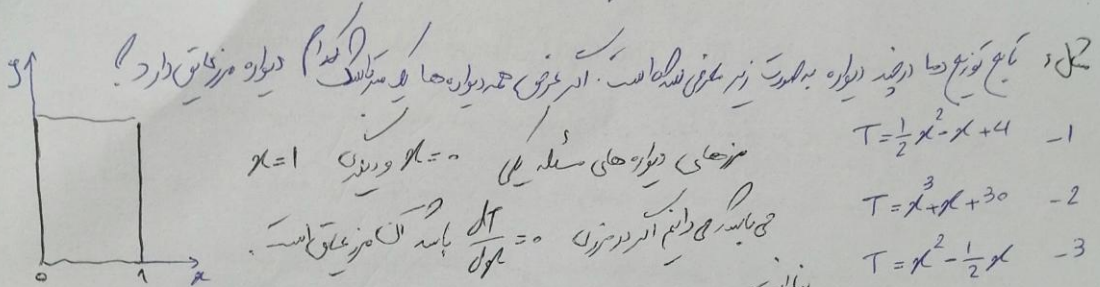 مثال: تابع توزیع دما در چند دیواره به صورت زیر معرفی شده است. اگر عرض همه دیواره ها یک متر باشد کدام دیواره مرز عایق دارد؟
T = 1/2 x² - x + 4 -1
مرزهای دیواره های مسئله یکی x = 0 و دیگری x = 1
T = x³ + x + 30 -2
می باشد. می دانیم اگر در مرزی dT/dx = 0 باشد آن مرز عایق است.
T = x² - 1/2 x -3
y
0 1 x